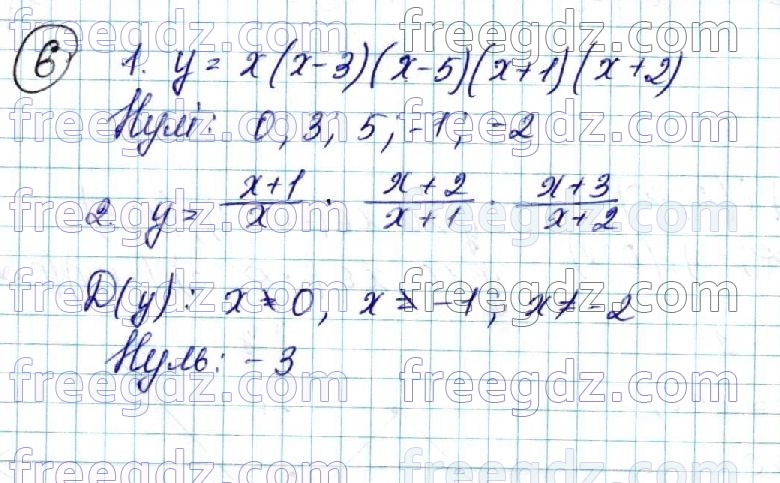 6 1. y = x(x-3)(x-5)(x+1)(x+2)
Нулі: 0; 3; 5; -1; -2
2. y = (x+1)/x · (x+2)/(x+1) · (x+3)/(x+2)
D(y): x ≠ 0, x ≠ -1, x ≠ -2
Нуль: -3
freegdz.com freegdz.com
freegdz.com freegdz.com
freegdz.com freegdz.com
freegdz.com freegdz.com
freegdz.com freegdz.com
freegdz.com freegdz.com